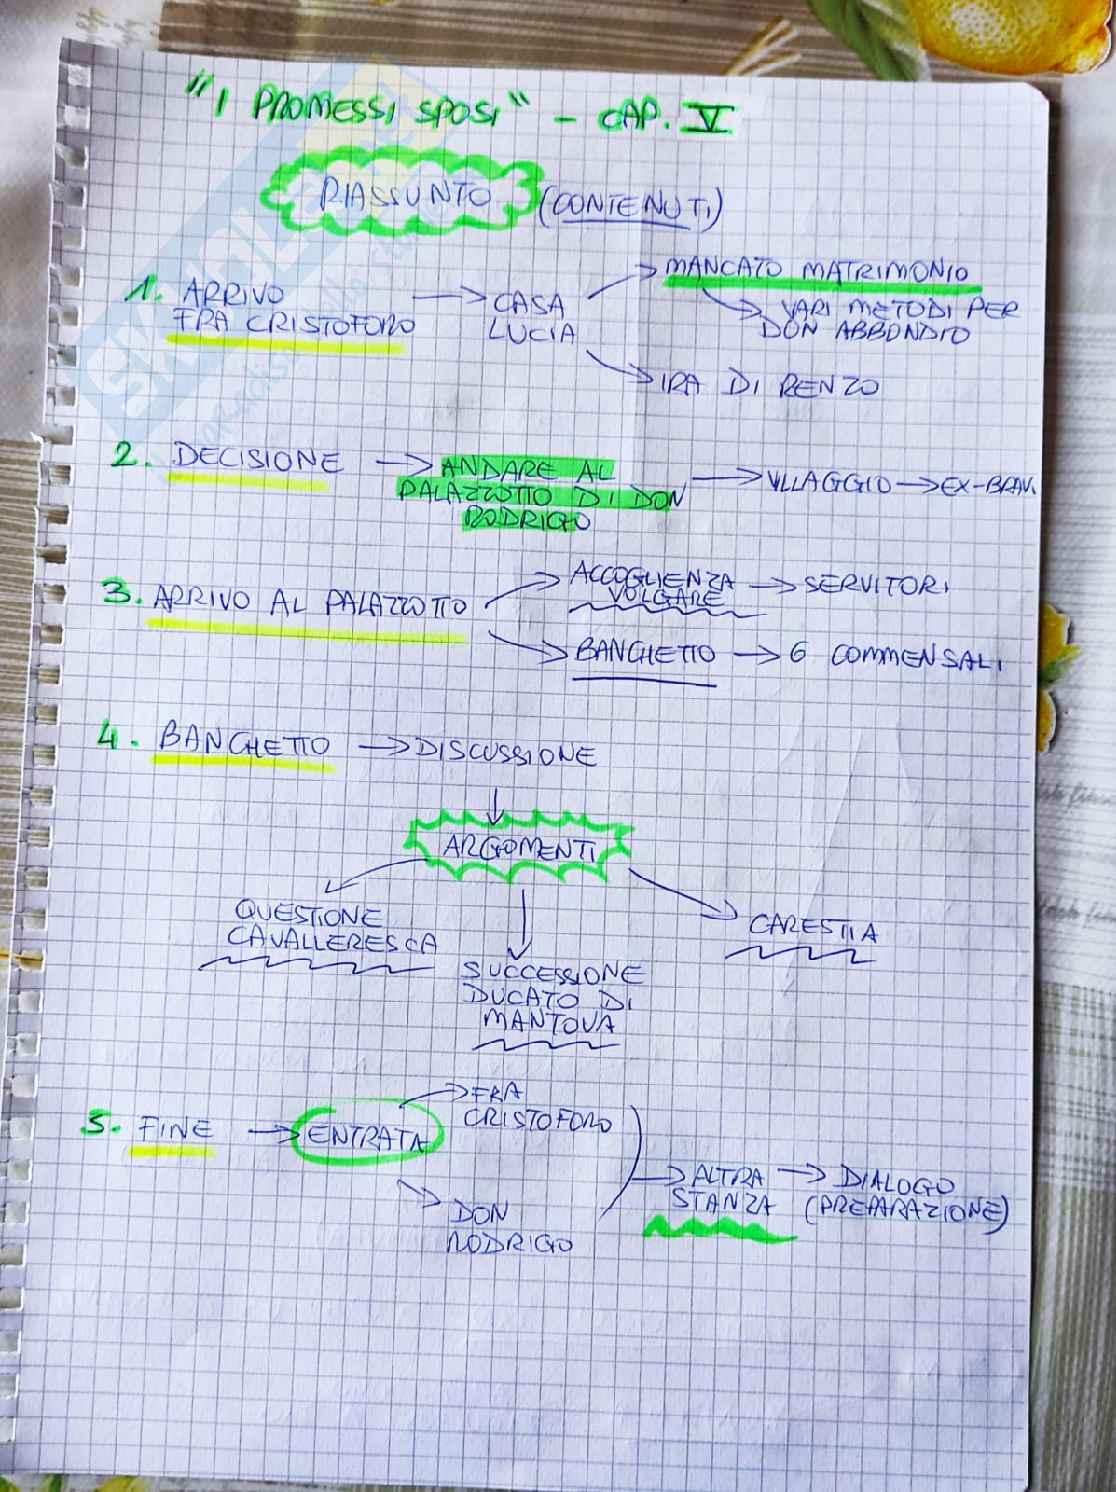 "I PROMESSI SPOSI" - CAP. V
RIASSUNTO (CONTENUTI)
1. ARRIVO
FRA CRISTOFORO
CASA
LUCIA
MANCATO MATRIMONIO
VARI METODI PER
DON ABBONDIO
IRA DI RENZO
2. DECISIONE
ANDARE AL
PALAZZOTTO DI DON
RODRIGO
VILLAGGIO
EX-BRAVI
3. ARRIVO AL PALAZZOTTO
ACCOGLIENZA
VOLGARE
SERVITORI
BANCHETTO
6 COMMENSALI
4. BANCHETTO
DISCUSSIONE
ARGOMENTI
QUESTIONE
CAVALLERESCA
SUCCESSIONE
DUCATO DI
MANTOVA
CARESTIA
5. FINE
ENTRATA
FRA
CRISTOFORO
DON
RODRIGO
ALTRA
STANZA
DIALOGO
(PREPARAZIONE)